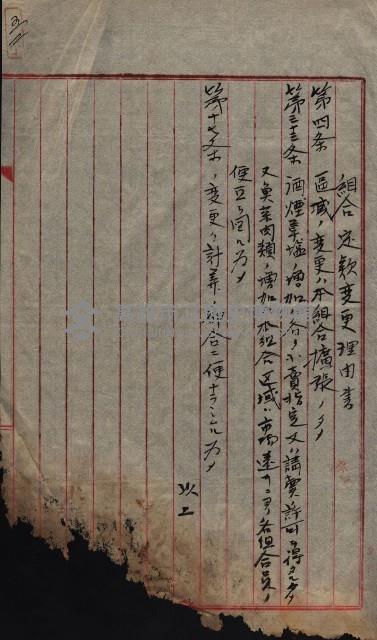 組合定款変更理由書
第四条 区域ノ変更ハ本組合擴張ノタメ
第三十三条 酒煙草塩ノ増加ハ各々小賣指定又ハ請賣許可ヲ得タルタメ
又魚菜肉類ノ増加ハ本組合区域ハ市場遠キニヨリ各組合員ノ
便宜ヲ図ルタメ
第十七条ノ変更ハ計算ノ都合ニ便ナラシムルタメ
以上